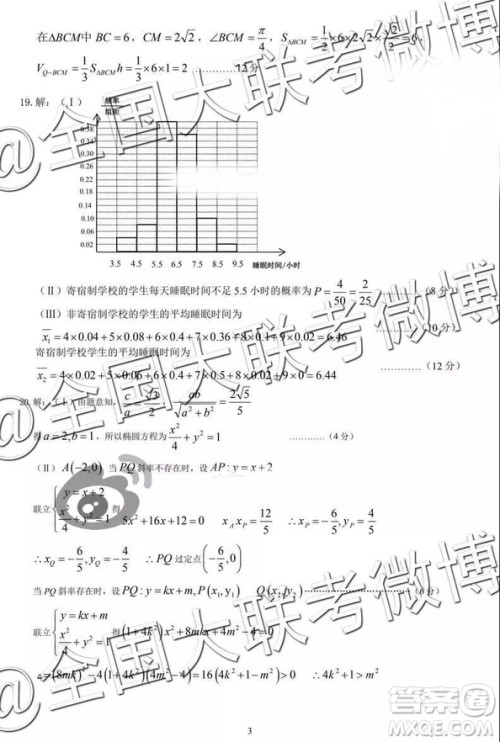 在ΔBCM中 BC=6，CM=2√2，∠BCM=π/4，S_{ΔBCM}=1/2×6×2√2×√2/2=6
V_{Q-BCM}=1/3 S_{ΔBCM}h=1/3×6×1=2 …………12分
19.解：（Ⅰ）
频率
组距
0.38
0.34
0.30
0.26
0.22
0.18
0.14
0.10
0.06
0.02
3.5 4.5 5.5 6.5 7.5 8.5 9.5 睡眠时间/小时
（Ⅱ）寄宿制学校的学生每天睡眠时间不足 5.5 小时的概率为 P=4/50=2/25 （8分）
（Ⅲ）非寄宿制学校的学生的平均睡眠时间为
x₁=4×0.04+5×0.08+6×0.4+7×0.38+8×0.1+9×0=6.46 （10分）
寄宿制学校学生的平均睡眠时间为
x₂=4×0.02+5×0.06+6×0.4+7×0.5+8×0.02+9×0=6.44 …………（12分）
20.解：（Ⅰ）由题意知，c/a=√3/2，ab/√(a²+b²)=2√5/5
得a=2,b=1，所以椭圆方程为 x²/4+y²=1 …………（4分）
（Ⅱ）A(-2,0) 当PQ斜率不存在时，设AP:y=x+2
联立{y=x+2, x²/4+y²=1 得 5x²+16x+12=0 x_A x_P=12/5 ∴x_P=-6/5
∴x_Q=-6/5,y_Q=-4/5 ∴PQ过定点(-6/5,0)
当PQ斜率存在时，设PQ:y=kx+m,P(x₁,y₁) Q(x₂,y₂)…………（6分）
联立{y=kx+m, x²/4+y²=1 得(1+4k²)x²+8mkx+4m²-4=0
Δ=(8mk)²-4(1+4k²)(4m²-4)=16(4k²+1-m²)>0 ∴4k²+1>m²
3
@全国大联考微博
@全国大联考微博
@全国大联考微博
答案圈